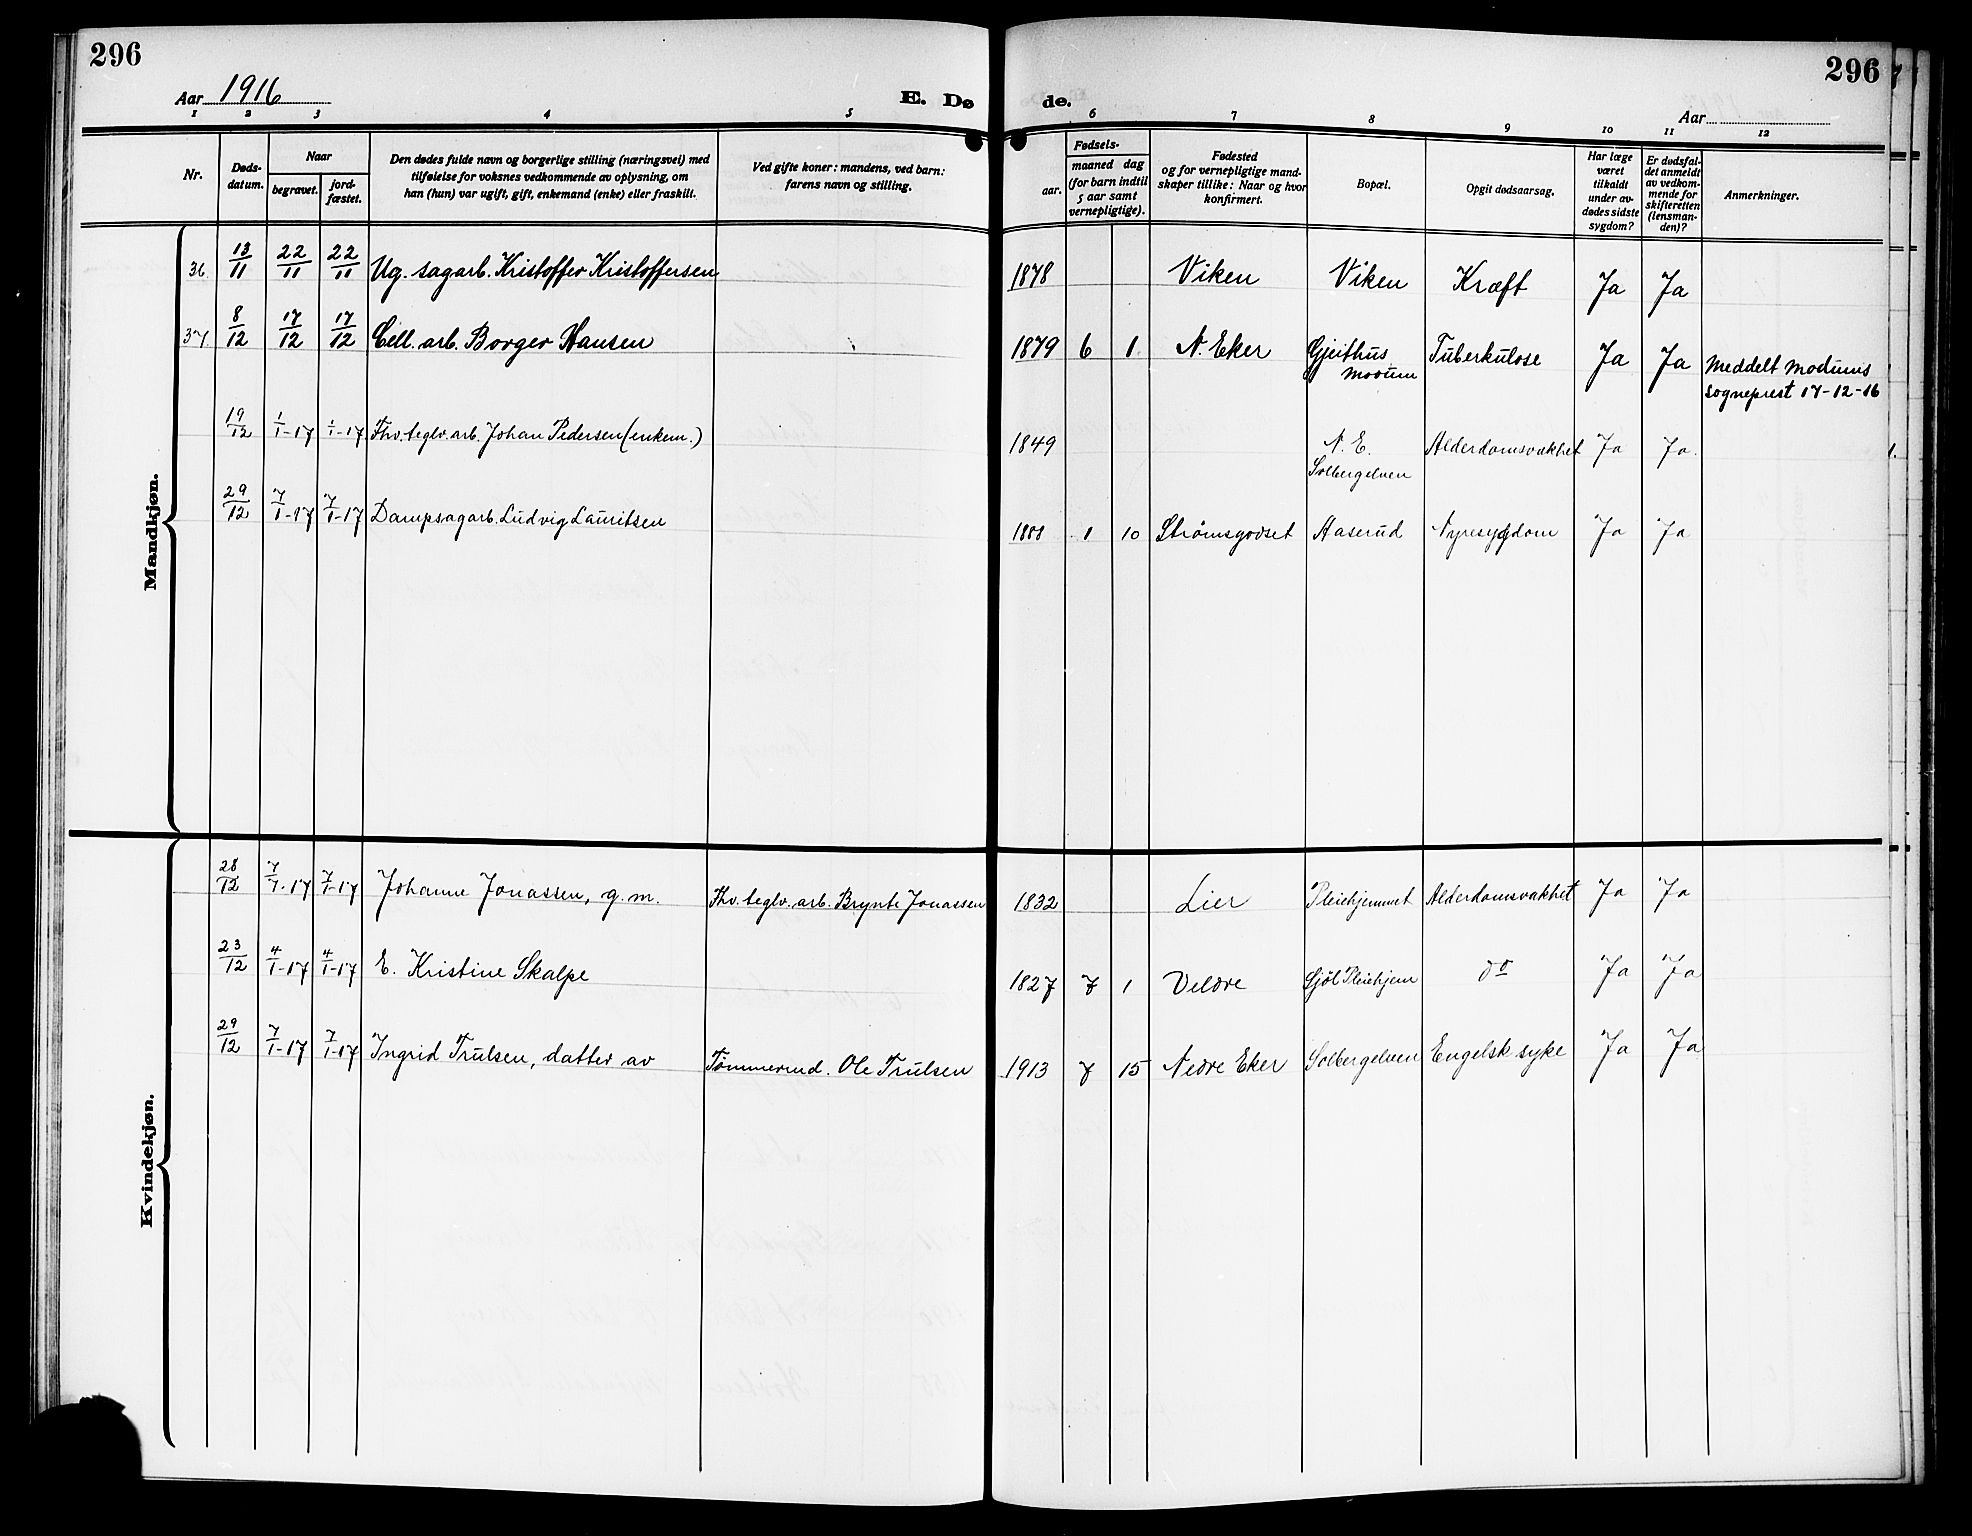 296
296
Aar 1916
E. Dø
de.
Aar
1 2 3 4 5
6 7 8 9 10 11 12
Nr.
Døds-
datum.
Naar
begravet.
jord-
fæstet.
Den dødes fulde navn og borgerlige stilling (næringsvei) med
tilføielse for voksnes vedkommende av oplysning, om
han (hun) var ugift, gift, enkemand (enke) eller fraskilt.
Ved gifte koner: mandens, ved barn:
farens navn og stilling.
Fødsels-
aar.
maaned dag
(for barn indtil
5 aar samt
vernepligtige).
Fødested
og for vernepligtige mand-
skaper tillike: Naar og hvor
konfirmert.
Bopæl.
Opgit dødsaarsag.
Har læge
været
tilkaldt
under av-
dødes sidste
sygdom?
Er dødsfal-
det anmeldt
av vedkom-
mende for
skifteretten
(lensman-
den)?
Anmerkninger.
Mandkjøn.
36. 13/11 22/11 22/11 Ug. sagarb. Kristoffer Kristoffersen 1878 Viken Viken Kræft Ja Ja
37. 8/12 17/12 17/12 Cell. arb. Borger Hansen 1879 6 1. N. Eker Gjeithus Tuberkulose Ja Ja Meddelt Modums
Modum sogneprest 17-12-16
19/12 1/1-17 1/1-17 Fhv. teglv. arb. Johan Pedersen (enkem.) 1849 N. E. Alderdomsvakhet Ja Ja.
Solbergelven
29/12 7/1-17 7/1-17 Dampsagarb. Ludvig Lauritsen 1 10 Strømsgodset Aaserud Nyresygdom Ja Ja
Kvindekjøn.
28/12 7/1-17 7/1-17 Johanne Jonassen, g. m. Fhv. teglv. arb. Brynte Jonassen 1832 Lier Pleiehjemmet Alderdomsvakhet Ja Ja
23/12 4/1-17 4/1-17 E. Kristine Skalpe 1827 7 1 Veldre Sjøl Pleiehjem do Ja Ja
29/12 7/1-17 7/1-17 Ingrid Trulsen, datter av Tømmermd. Ole Trulsen 1913 7 15 Nedre Eker Solbergelven Engelsk syke Ja Ja